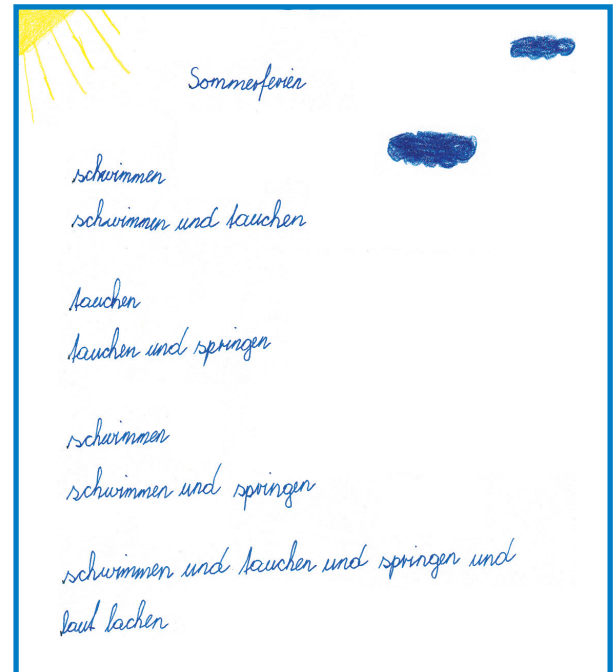 Sommerferien
schwimmen
schwimmen und tauchen
tauchen
tauchen und springen
schwimmen
schwimmen und springen
schwimmen und tauchen und springen und
laut lachen